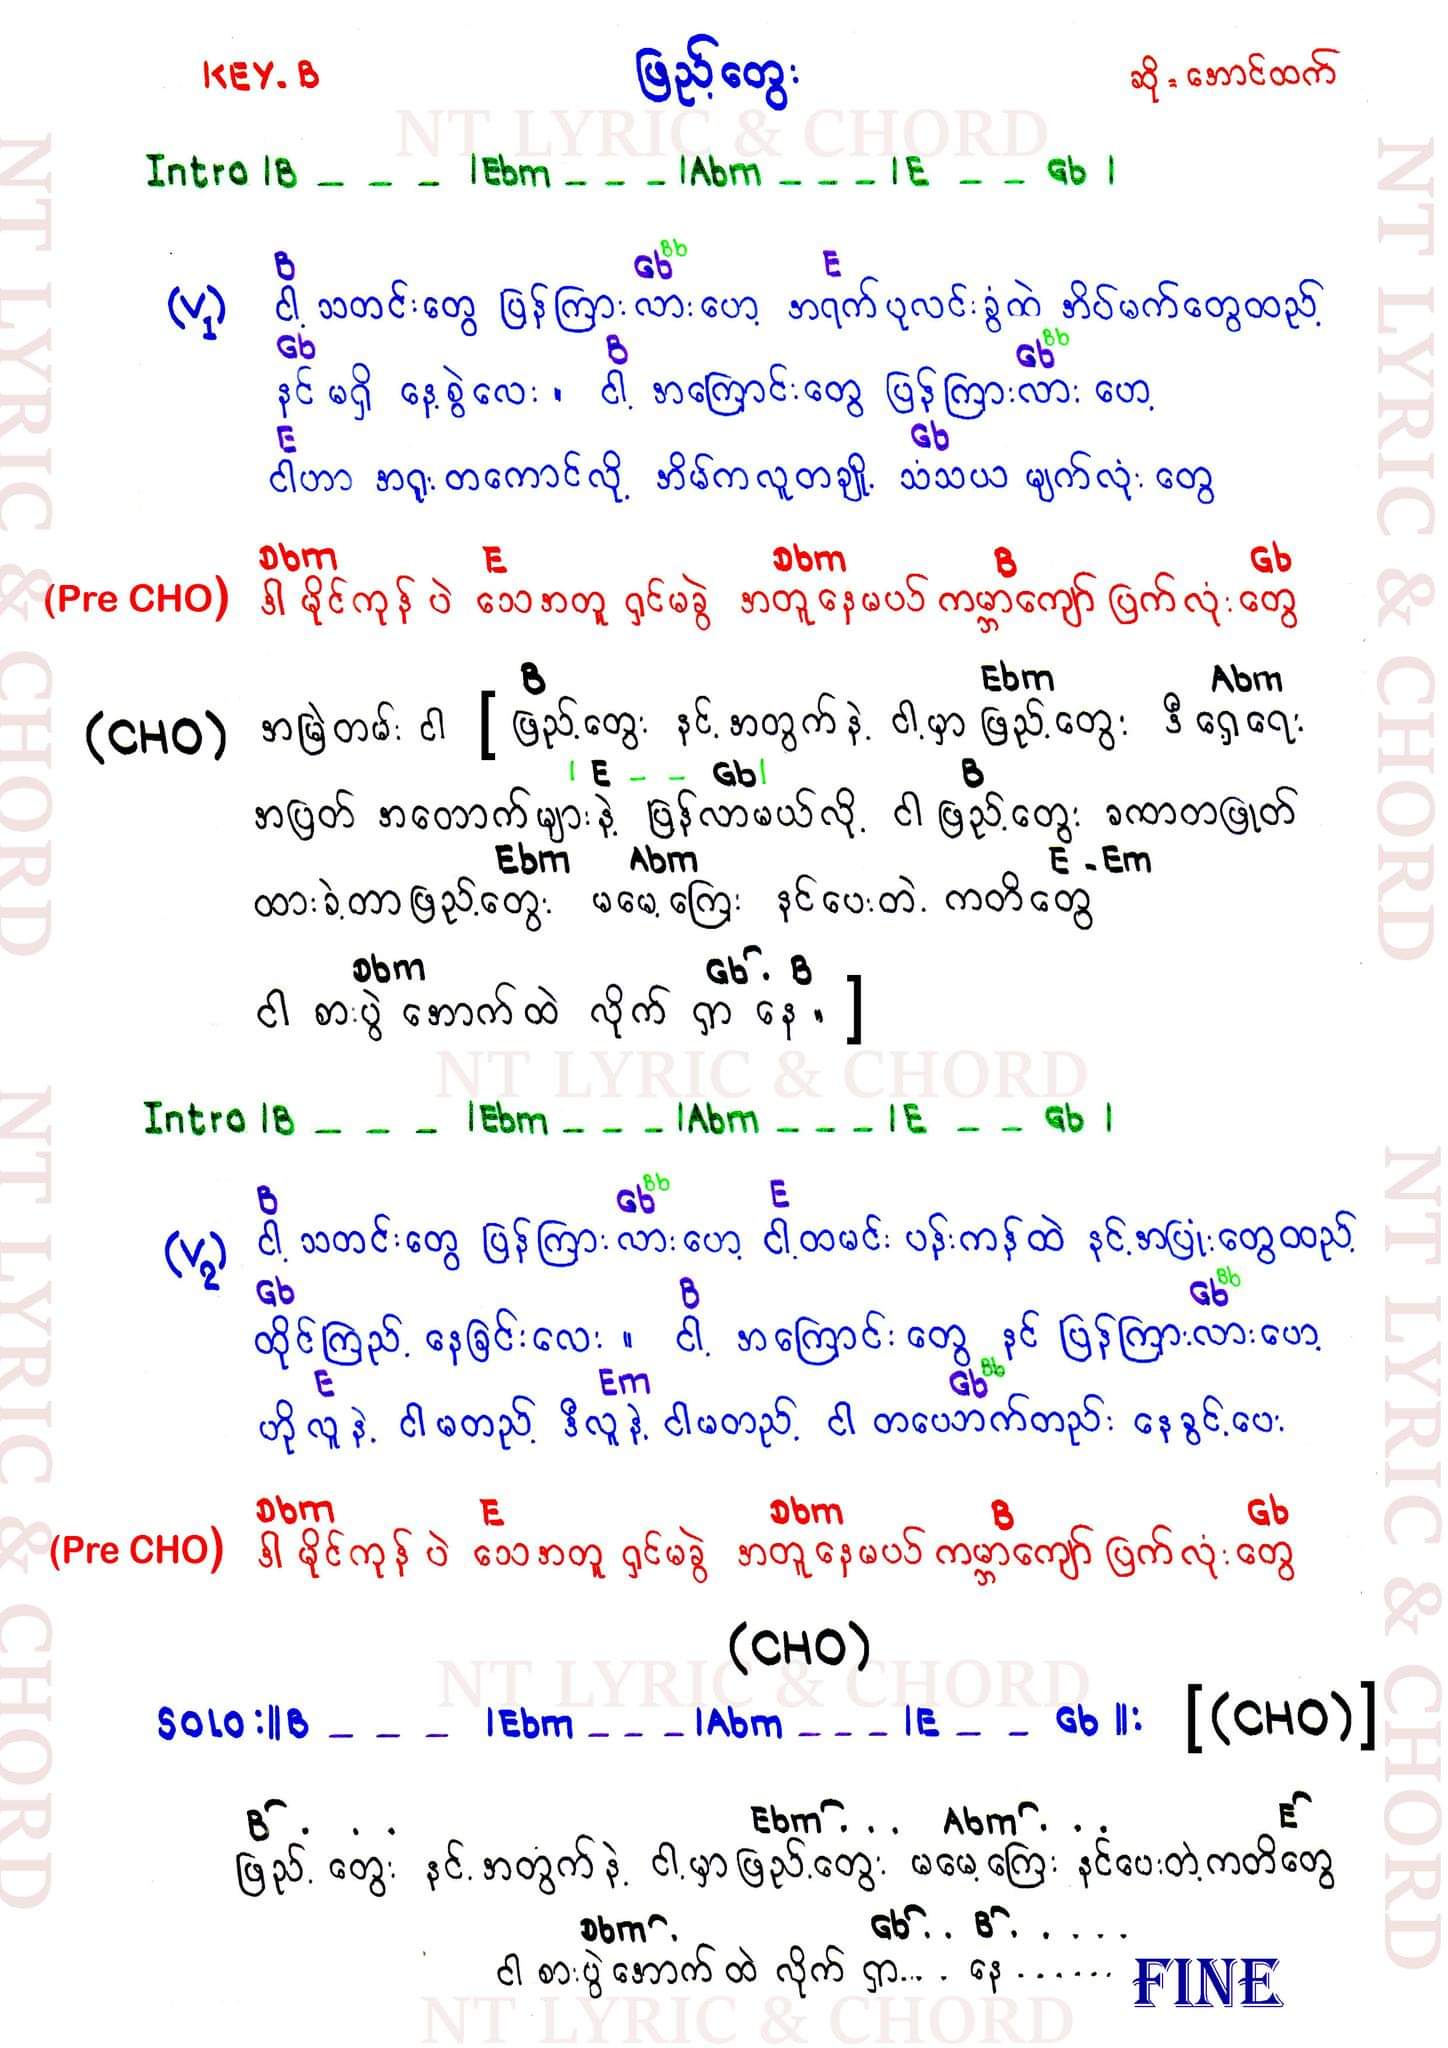 KEY. B ဖြည့်တွေး ဆို = အောင်ထက်
NT LYRIC & CHORD
Intro |B _ _ _ |Ebm _ _ _ |Abm _ _ _ |E _ _ Gb |
B Gb Bb E
(V1) ငါ့ သတင်းတွေ ပြန်ကြားလားဟေ့ အရက်ပုလင်းခွံထဲ အိပ်မက်တွေထည့်
Gb B Gb Bb
နင်မရှိ နေ့စွဲလေး ။ ငါ့ အကြောင်းတွေ ပြန်ကြားလား ဟေ့
E Gb
ငါဟာ အရူးတကောင်လို့ အိမ်ကလူတချို့ သံသယ မျက်လုံးတွေ
Dbm E Dbm B Gb
(Pre CHO) ဒါ မိုင်ကုန်ပဲ သေအတူ ရှင်မခွဲ အတူနေမယ် ကမ္ဘာကျော် ပြက်လုံးတွေ
B Ebm Abm
(CHO) အမြဲတမ်း ငါ [ ဖြည့်တွေး နင့်အတွက်နဲ့ ငါ့မှာ ဖြည့်တွေး ဒီ ရှေ့ရေး
| E _ _ Gb| B
အပြတ် အတောက်များနဲ့ ပြန်လာမယ်လို့ ငါ ဖြည့်တွေး ခဏတဖြုတ်
Ebm Abm E - Em
ထားခဲ့တာဖြည့်တွေး မမေ့ကြေး နင်ပေးတဲ့ ကတိတွေ
Dbm Gb . B
ငါ စားပွဲ အောက်ထဲ လိုက် ရှာ နေ ။ ]
NT LYRIC & CHORD
Intro |B _ _ _ |Ebm _ _ _ |Abm _ _ _ |E _ _ Gb |
B Gb Bb E
(V2) ငါ့ သတင်းတွေ ပြန်ကြားလားဟေ့ ငါ့ထမင်း ပန်းကန်ထဲ နင့်အပြုံးတွေထည့်
Gb B Gb Bb
ထိုင်ကြည့် နေခြင်းလေး ။ ငါ့ အကြောင်းတွေ နင် ပြန်ကြားလားဟေ့
E Em Gb Bb
ဟိုလူနဲ့ ငါမတည့် ဒီလူနဲ့ ငါမတည့် ငါ တယောက်တည်း နေခွင့်ပေး
Dbm E Dbm B Gb
(Pre CHO) ဒါ မိုင်ကုန်ပဲ သေအတူ ရှင်မခွဲ အတူနေမယ် ကမ္ဘာကျော် ပြက်လုံးတွေ
(CHO)
NT LYRIC & CHORD
SOLO :||B _ _ _ |Ebm _ _ _ |Abm _ _ _ |E _ _ Gb ||: [(CHO)]
B . . . Ebm . . . Abm . . . E
ဖြည့် တွေး နင့်အတွက်နဲ့ ငါ့မှာ ဖြည့်တွေး မမေ့ကြေး နင်ပေးတဲ့ကတိတွေ
Dbm . Gb . . B . . . . . .
ငါ စားပွဲအောက်ထဲ လိုက် ရှာ.... နေ ...... FINE
NT LYRIC & CHORD
NT LYRIC & CHORD
NT LYRIC & CHORD
NT LYRIC & CHORD
NT LYRIC & CHORD